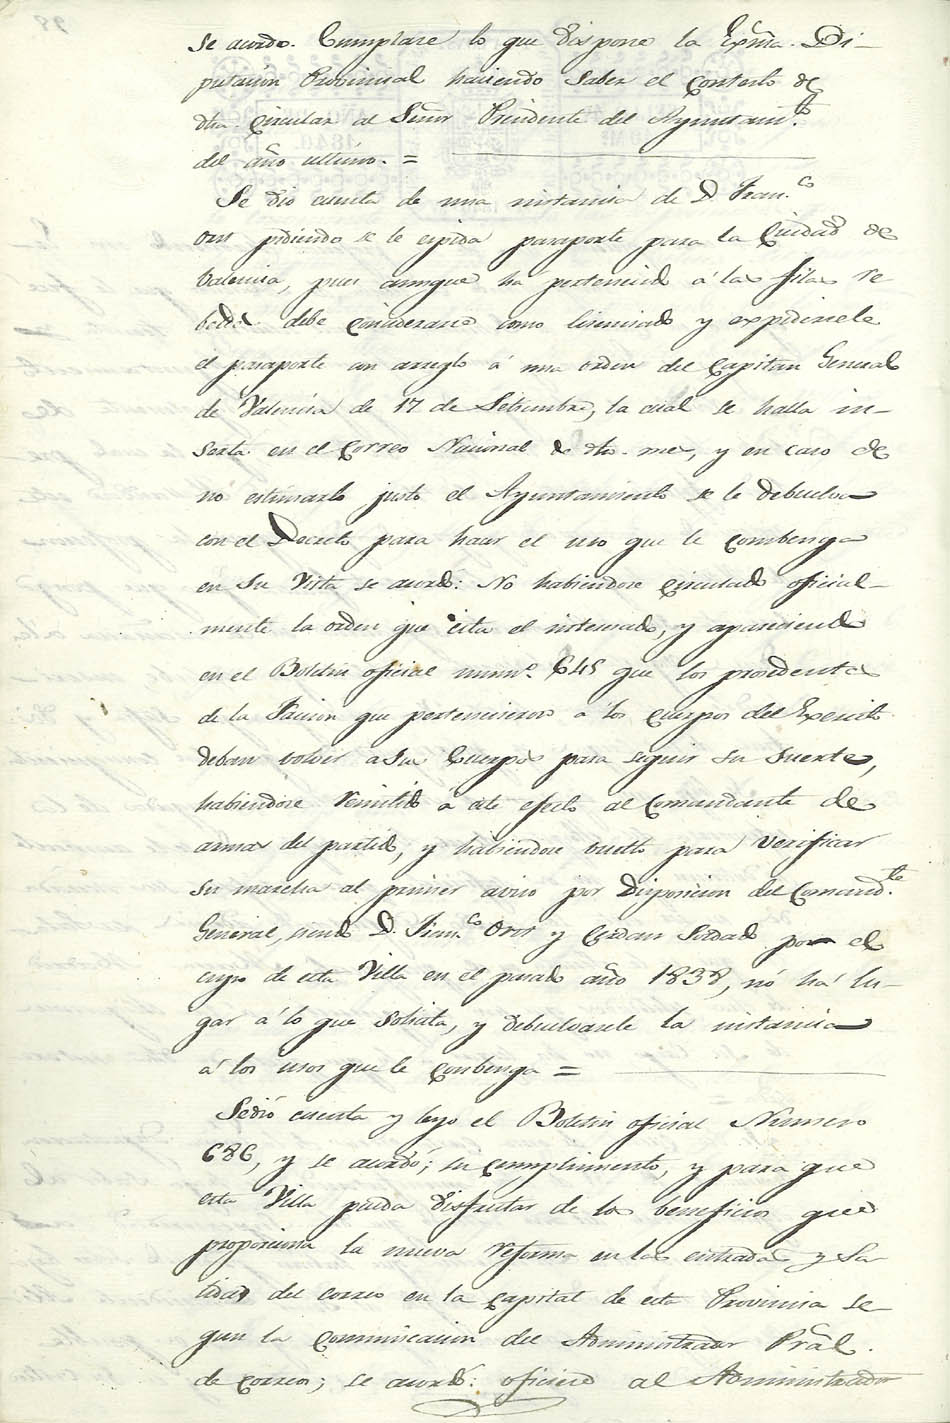 se acordo. Cumplase lo que dispone la Exma. Di-
putacion Provincial haciendo saber el contesto de
dha. Circular al Señor Presidente del Ayuntam.to
del año ultimo. =
Se dió cuenta de una instancia de D. Fran.co
Oros pidiendo se le espida pasaporte para la Ciudad de
Valencia, pues aunque ha pertenecido á las filas re-
beldes debe considerarse como licenciado y expidirsele
el pasaporte con arreglo á una orden del Capitan General
de Valencia de 17 de Setiembre, la cual se halla in-
serta en el Correo Nacional de dho. mes, y en caso de
no estimarlo justo el Ayuntamiento se le debuelva
con el Decreto para hacer el uso que le combenga
en su Vista se acordó: No habiendose circulado oficial-
mente la orden que cita el interesado, y apareciendo
en el Boletin oficial num.o 645 que los procedentes
de la Faccion que pertenecieron á los cuerpos del Exercito
deban volver a sus Cuerpos para seguir su suerte,
habiendose remitido á este efecto al Comandante de
armas del partido, y habiendose vuelto para verificar
su marcha al primer aviso por disposicion del Comand.te
General, siendo D. Fran.co Oros y Soldado por el
cupo de esta Villa en el pasado año 1838, nó há lu-
gar á lo que solicita, y debuelvasele la instancia
á los usos que le conbenga =
Se dió cuenta y leyo el Boletin oficial Numero
686, y se acordó; su cumplimiento, y para que
esta Villa pueda disfrutar de los beneficios que
proporciona la nueva reforma en las entradas y Sa-
lidas del correo en la capital de esta Provincia se-
gun la comunicacion del Administrador Pral.
de Correos; se acordó: oficiese al Administrador